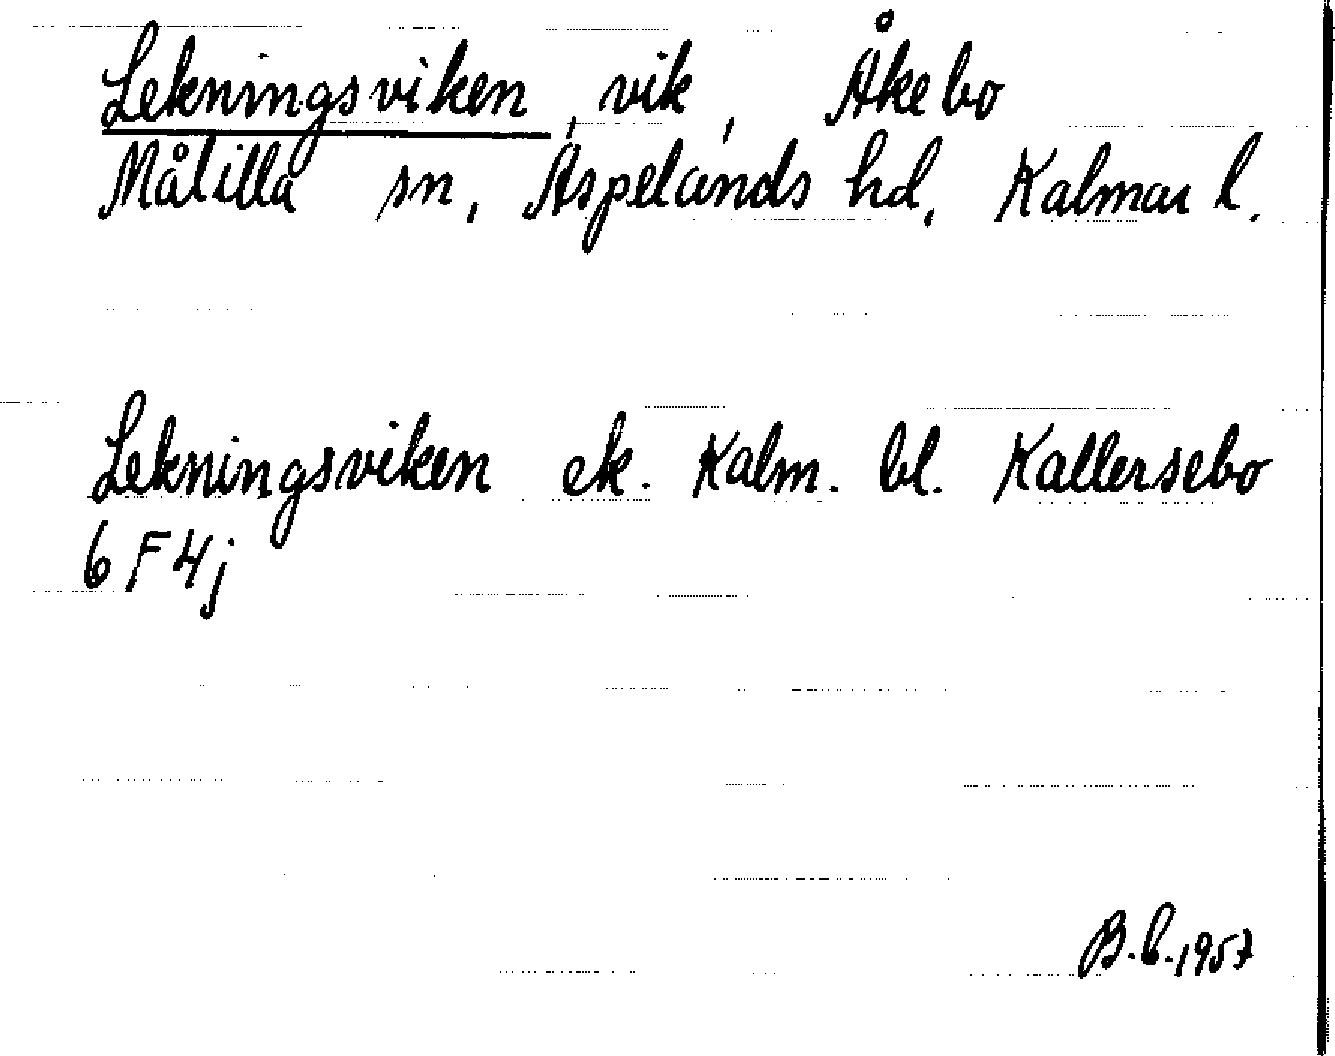 Lekningsviken, vik, Åkebo
Målilla sn, Aspelands hd, Kalmar l.
Lekningsviken ek. Kalm. bl. Kallersebo
6 F 4j
B.C. 1957